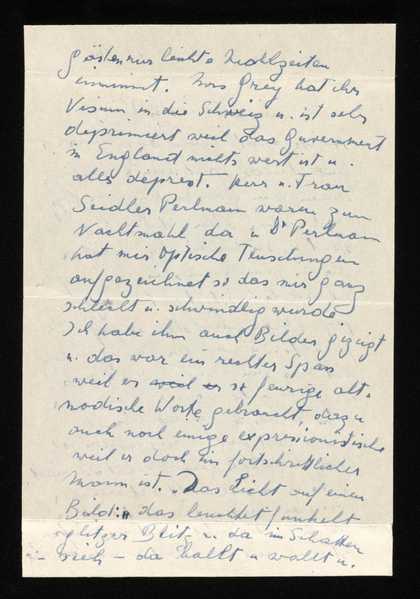 gästen nur leichte Mahlzeiten
einnimmt. Mrs Grey hat ihr
Visum in die Schweiz u. ist sehr
deprimiert weil das Guvernment
in England nichts wert ist u.
alles deprest. Herr u. Frau
Seidler Perlmann waren zum
Nachtmahl da u Dr Perlmann
hat mir optische Teuschungen
aufgezeichnet so das mir ganz
schlecht u. schwindlig wurde
Ich habe ihm auch Bilder gezeigt
u. das war ein rechter Spass
weil er weil er so feurige alt-
modische Worte gebraucht, dazu
auch noch einige expressionistische
weil er doch ein fortschrittlicher
Mann ist. „Das Licht auf einem
Bild: „das leuchtet funkelt
glitzer Blitz u. da im Schatten
sich - da wallt u.